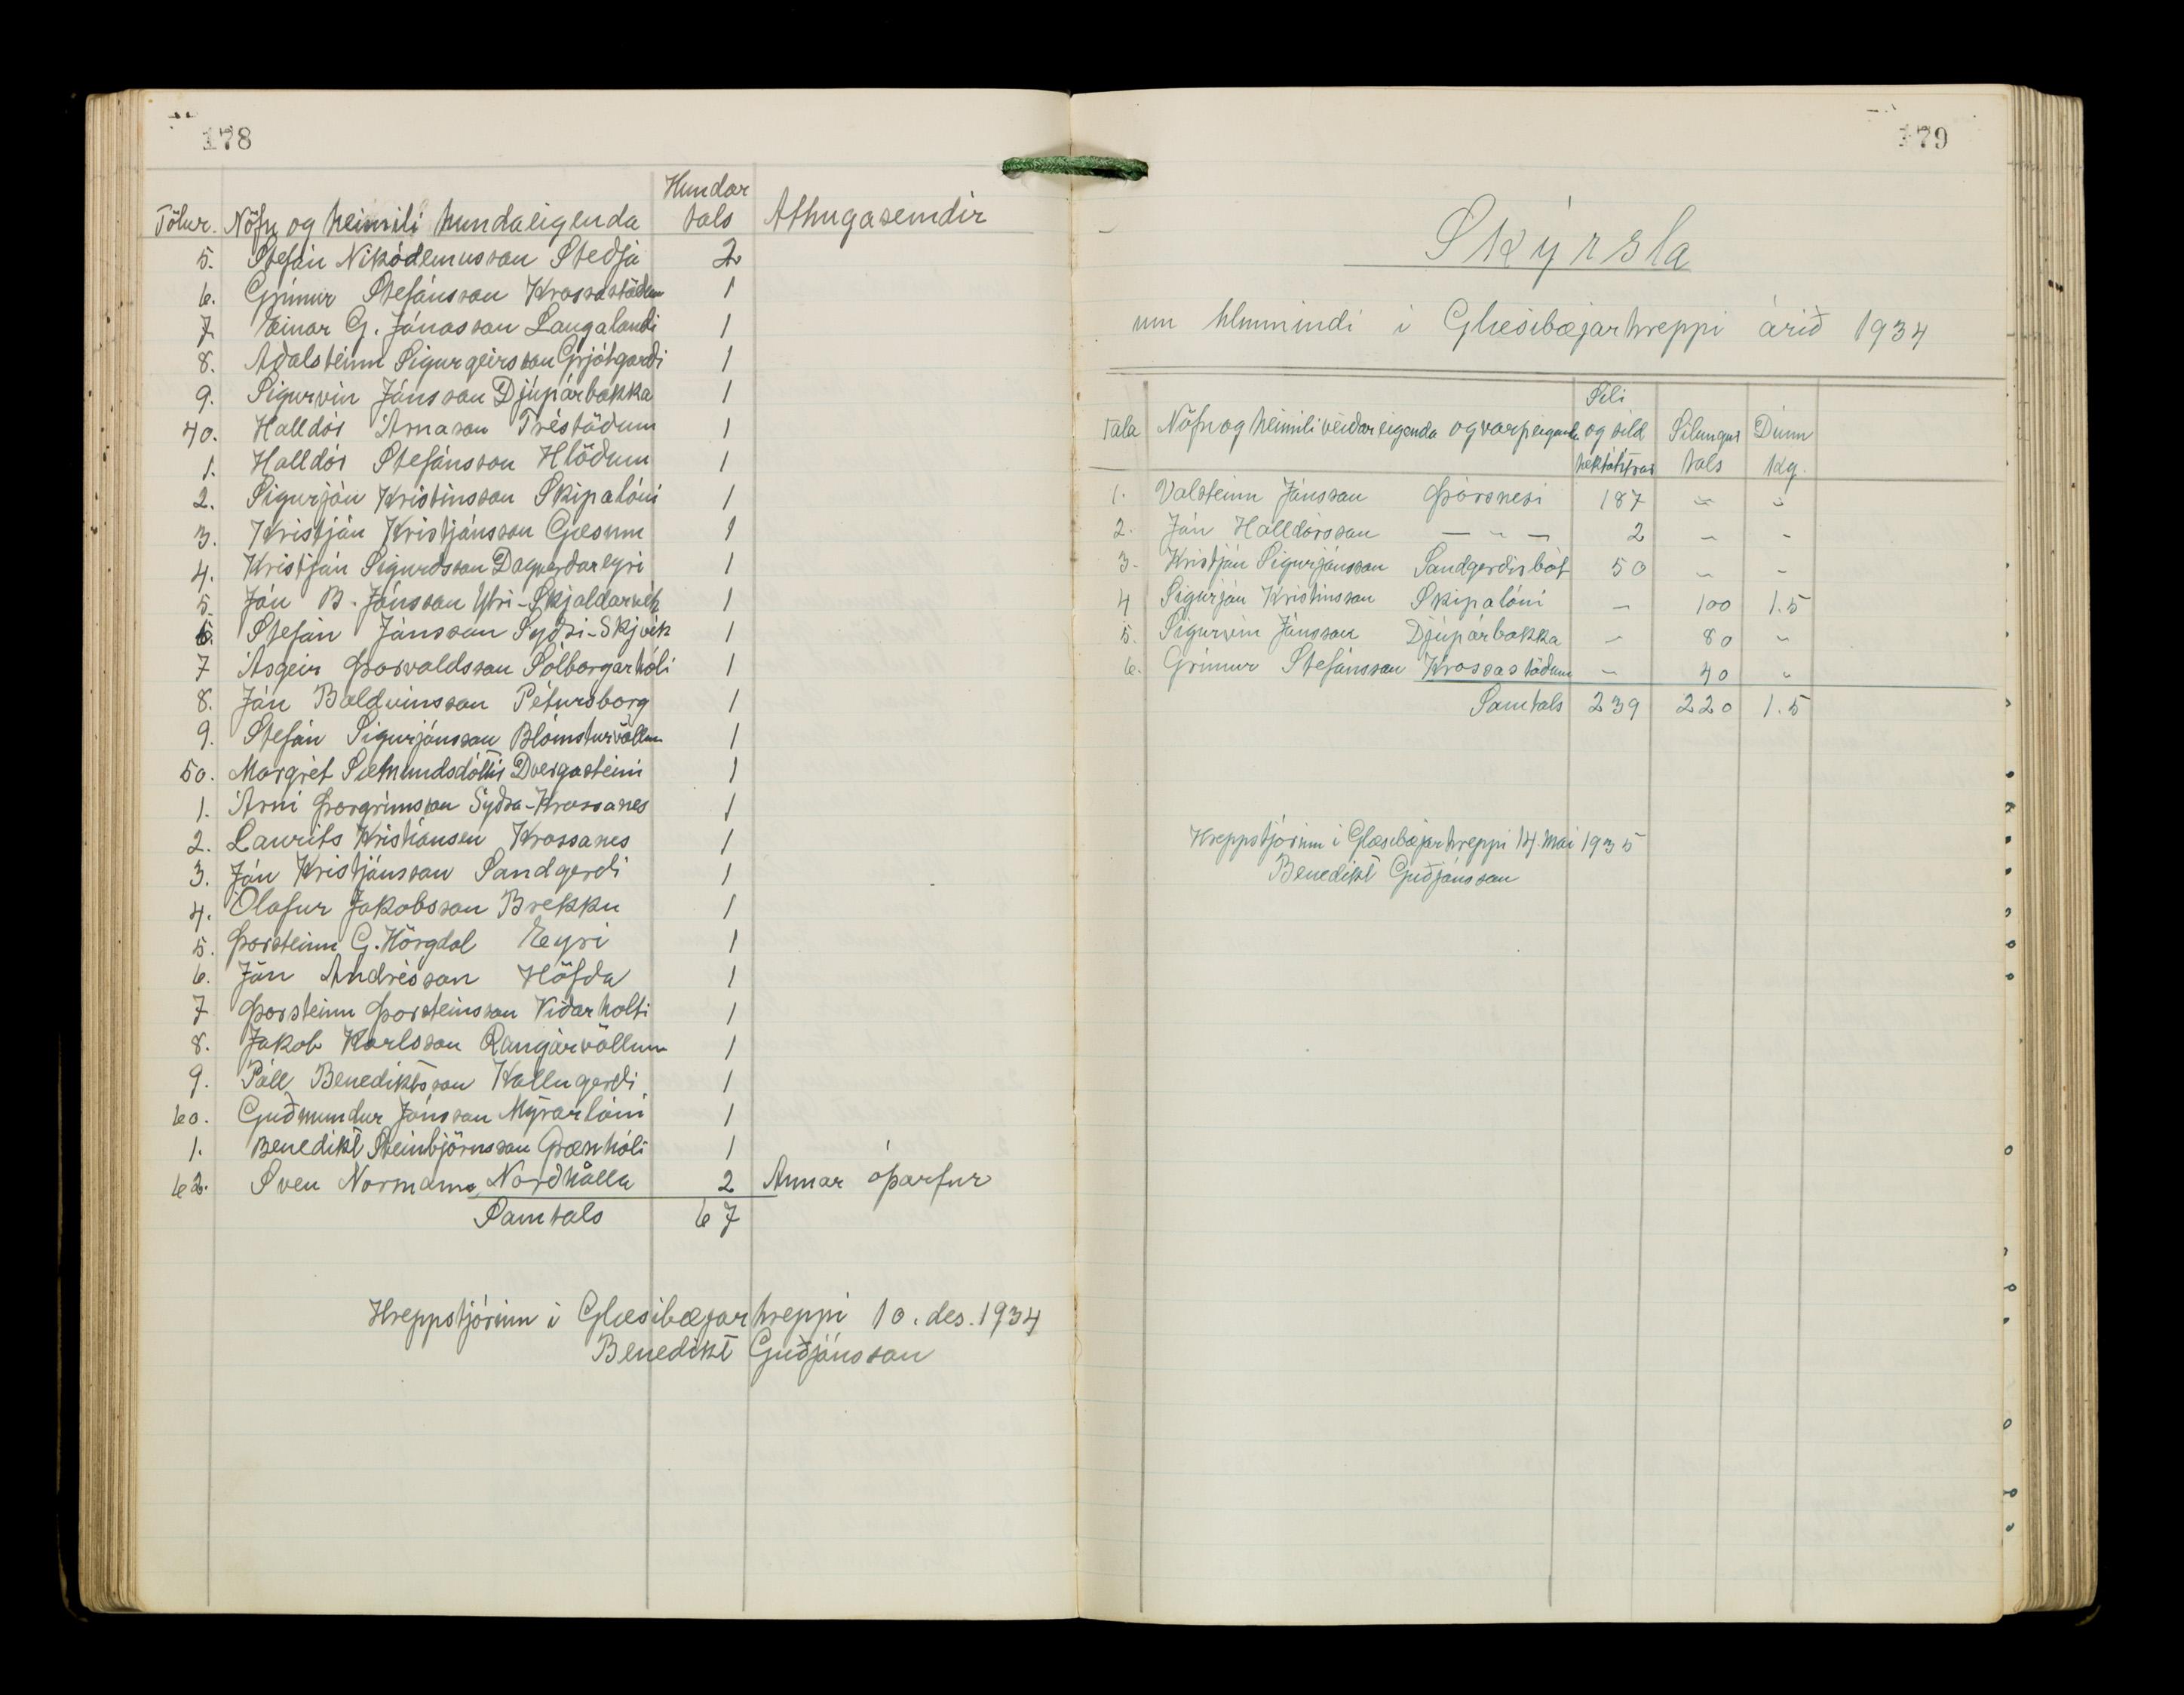 178
Tölur. Nöfn og heimili hundaeigenda Hundar tals Athugasemdir
5. Stefán Nikódemusson Steðja 2
6. Grímur Stefánsson Krossastöðum 1
7 Einar G. Jónasson Laugalandi 1
8. Aðalsteinn Sigurgeirsson Grjótgarði 1
9. Sigurvin Jónsson Djúpárbakka 1
40. Halldór Árnason Tréstöðum 1
1. Halldór Stefánsson Hlöðum 1
2. Sigurjón Kristinsson Skipalóni 1
3. Kristján Kristjánsson Gæsum 1
4. Kristján Sigurðsson Dagverðareyri 1
5. Jón B. Jónsson Ytri-Skjaldarvík 1
6. Stefán Jónsson Syðri-Skjvík 1
7 Ásgeir Þorvaldsson Sólborgarhóli 1
8. Jón Baldvinsson Pétursborg 1
9. Stefán Sigurjónsson Blómsturvöllum 1
50. Margrét Sæmundsdóttir Dvergasteini 1
1. Árni Þorgrímsson Syðra-Krossanes 1
2. Laurits Kristiansen Krossanes 1
3. Jón Kristjánsson Sandgerði 1
4. Ólafur Jakobsson Brekku 1
5. Þorsteinn G. Hörgdal Eyri 1
6. Jón Andrésson Höfða 1
7 Þorsteinn Þorsteinsson Viðarholti 1
8. Jakob Karlsson Rangárvöllum 1
9. Páll Benediktsson Kallugerði 1
60. Guðmundur Jónsson Mýrarlóni 1
1. Benedikt Steinbjörnsson Grænhóli 1
62. Sven Normann, Nordhålla 2 Annar óþarfur
Samtals 67
Hreppstjórinn í Glæsibæjarhreppi 10. des. 1934
Benedikt Guðjónsson
179
Skýrsla
um hlunnindi í Glæsibæjarhreppi árið 1934
Tala Nöfn og heimili veiðareigenda og varpeigenda Síli og síld hektólítrar Silungur tals Dúnn kg.
1. Valsteinn Jónsson Þórsnesi 187 " "
2. Jón Halldórsson — " — 2 " "
3. Kristján Sigurjónsson Sandgerðisbót 50 " "
4 Sigurjón Kristinsson Skipalóni " 100 1.5
5. Sigurvin Jónsson Djúpárbakka " 80 "
6. Grímur Stefánsson Krossastöðum " 40 "
Samtals 239 220 1.5
Hreppstjórinn í Glæsibæjarhreppi 14. maí 1935
Benedikt Guðjónsson